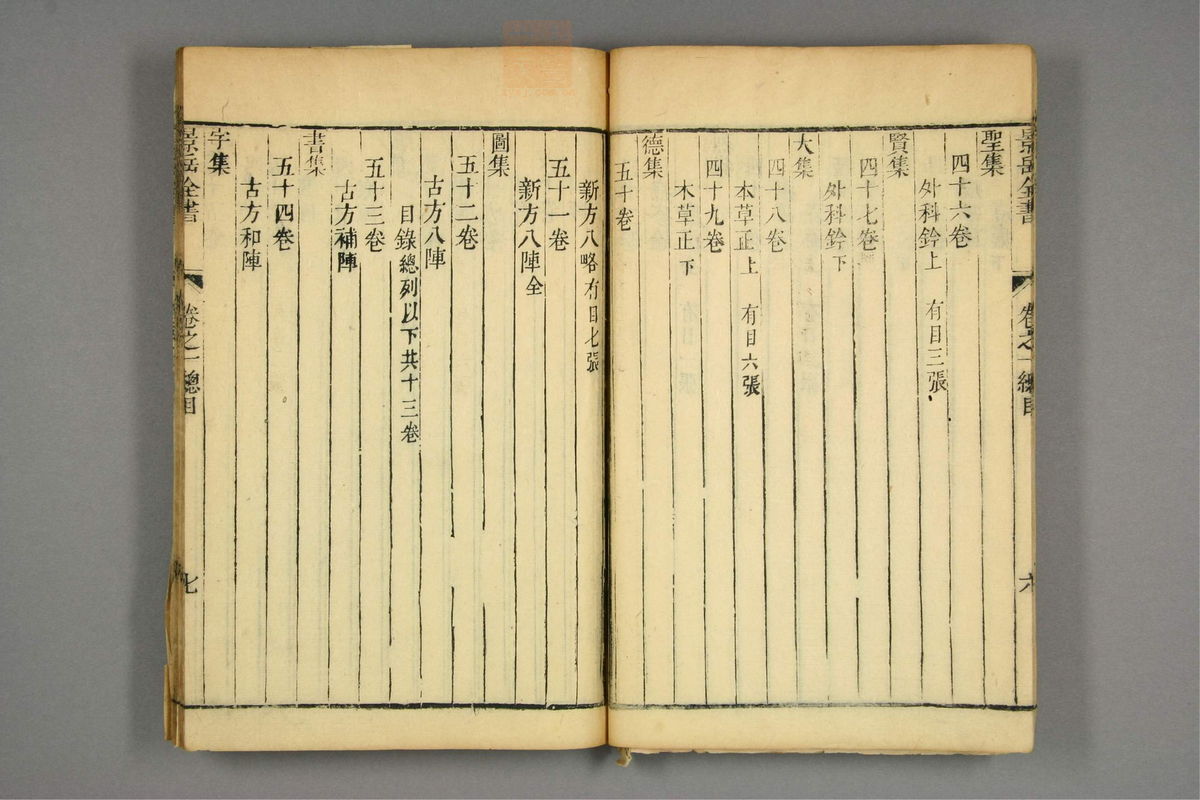 景岳全書 卷之一總目 六
聖集
四十六卷
外科鈐上 有目三張
賢集
四十七卷
外科鈐下
大集
四十八卷
本草正上 有目六張
四十九卷
木草正下
德集
五十卷
新方八略有目七張
五十一卷
新方八陣全
圖集
五十二卷
古方八陣
目錄總列以下共十三卷
五十三卷
古方補陣
書集
五十四卷
古方和陣
字集
景岳全書 卷之一總目 七